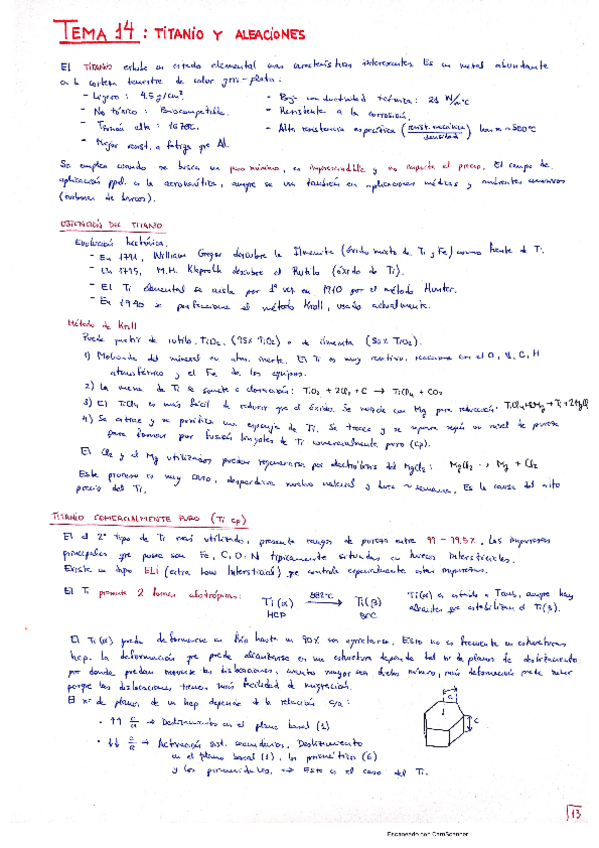 TEMA 14: TITANIO Y ALEACIONES
El titanio exhibe en estado elemental unas características interesantes. Es un metal abundante
en la corteza terrestre de color gris-plata:
- Ligero: 4.5 g/cm³
- Baja conductividad térmica: 21 W/m°C
- No tóxico: Biocompatible.
- Resistente a la corrosión.
- Tfusión alta: 1670°C.
- Alta resistencia específica (resist. mecánica / densidad) hasta ≈500°C
- Mejor resist. a fatiga que Al.
Se emplea cuando se busca un peso mínimo, es imprescindible y no importa el precio. El campo de
aplicación ppal. es la aeronáutica, aunque se usa también en aplicaciones médicas y ambientes
OBTENCIÓN DEL TITANIO
Evolución histórica.
- En 1791, William Gregor descubre la Ilmenita (óxido mixto de Ti y Fe) como fuente de Ti.
- En 1795, M.H. Klaproth descubre el Rutilo (óxido de Ti).
- El Ti elemental se aísla por 1ª vez en 1910 por el método Hunter.
- En 1940 se perfecciona el método Kroll, usado actualmente.
Método de Kroll
Puede partir de rutilo, TiO₂, (95% TiO₂) o de ilmenita (50% TiO₂).
1) Molienda del mineral en atm. inerte. El Ti es muy reactivo, reacciona con el O, N, C, H
atmosférico y el Fe de los equipos.
2) La mena de Ti se somete a cloración: TiO₂ + 2Cl₂ + C → TiCl₄ + CO₂
3) El TiCl₄ es más fácil de reducir que el óxido. Se mezcla con Mg para reducción: TiCl₄+2Mg → Ti + 2MgCl₂
4) Se extrae y se purifica una esponja de Ti. Se trocea y se separa según su nivel de pureza
para formar por fusión lingotes de Ti comercialmente puro (cp).
El Cl₂ y el Mg utilizados pueden regenerarse por electrólisis del MgCl₂: MgCl₂ → Mg + Cl₂
Este proceso es muy caro, desperdicia mucho material y dura ≈ semanas. Es la causa del alto
precio del Ti.
TITANIO COMERCIALMENTE PURO (Ti cp)
El el 2º tipo de Ti más utilizado, presenta rangos de pureza entre 99 - 99.5%, las impurezas
principales que posee son Fe, C, O y N típicamente situadas en huecos intersticiales.
Existe un tipo ELI (extra low interstitials) que controla especialmente estas impurezas.
El Ti presenta 2 formas alotrópicas:
Ti(α) 882°C → Ti(β)
HCP BCC
Ti(α) es estable a Tamb, aunque hay
aleantes que estabilizan el Ti(β).
El Ti(α) puede deformarse en frío hasta un 90% sin agrietarse. Esto no es frecuente en estructuras
hcp. La deformación que puede alcanzarse en una estructura depende del nº de planos de deslizamiento
por donde puedan moverse las dislocaciones, cuanto mayor sea dicho número, más deformación puede haber
porque las dislocaciones tienen más facilidad de migración.
El nº de planos de un hcp depende de la relación c/a:
• ↑↑ c/a → Deslizamiento en el plano basal (1)
• ↓↓ c/a → Activación sist. secundarios. Deslizamiento
en el plano basal (1), los prismáticos (6)
y los piramidales. → Este es el caso del Ti.
a
c
13
Escaneado con CamScanner